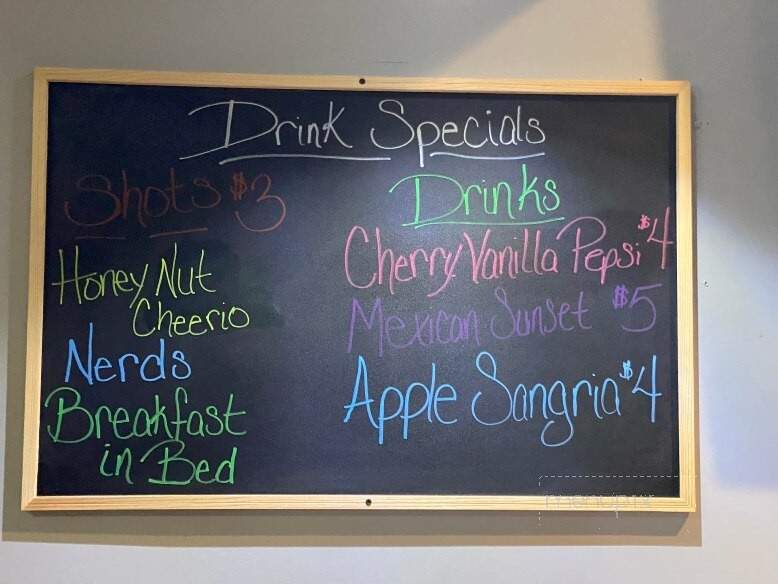 Drink Specials
Shots $3
Honey Nut
Cheerio
Nerds
Breakfast
in Bed
Drinks
Cherry Vanilla Pepsi $4
Mexican Sunset $5
Apple Sangria $4